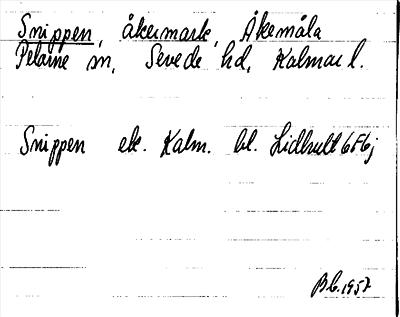 Snippen, åkermark, Åkemåla
Pelarne sn, Sevede hd, Kalmar l.
Snippen ek. Kalm. bl. Lidhult 6F6j
1957